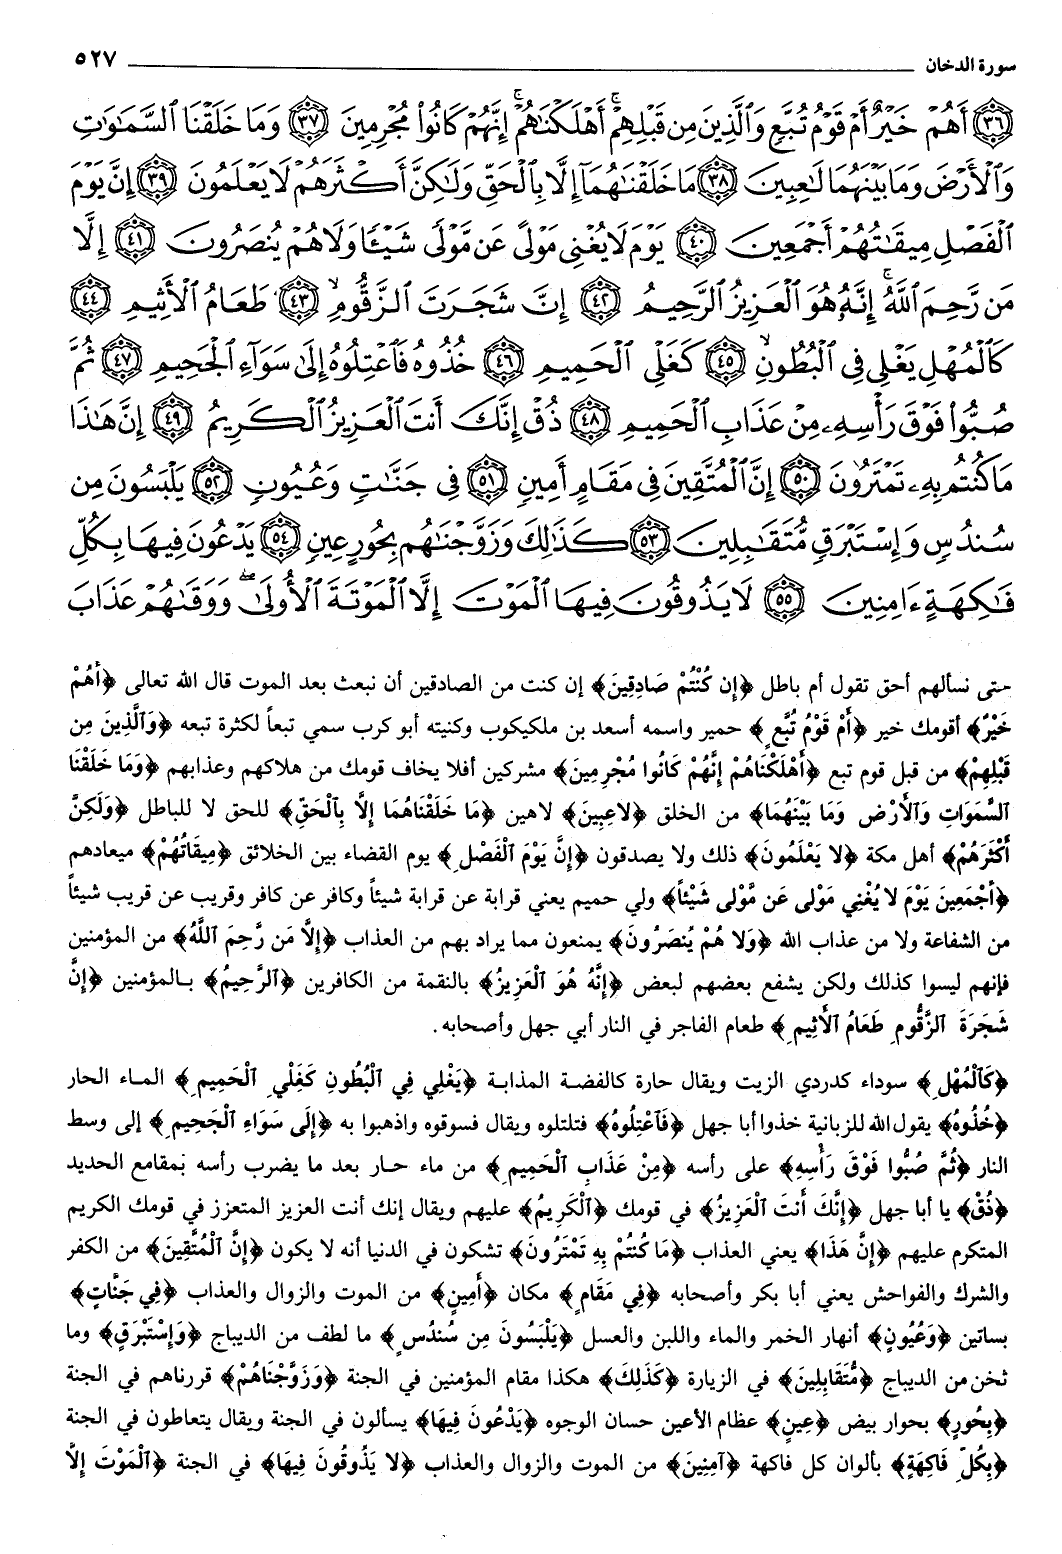 سورة الدخان ٥٢٧
٣٦ أَهُمْ خَيْرٌ أَمْ قَوْمُ تُبَّعٍ وَٱلَّذِينَ مِن قَبْلِهِمْ ۚ أَهْلَكْنَـٰهُمْ ۚ إِنَّهُمْ كَانُوا۟ مُجْرِمِينَ ٣٧ وَمَا خَلَقْنَا ٱلسَّمَـٰوَٰتِ
وَٱلْأَرْضَ وَمَا بَيْنَهُمَا لَـٰعِبِينَ ٣٨ مَا خَلَقْنَـٰهُمَآ إِلَّا بِٱلْحَقِّ وَلَـٰكِنَّ أَكْثَرَهُمْ لَا يَعْلَمُونَ ٣٩ إِنَّ يَوْمَ
ٱلْفَصْلِ مِيقَـٰتُهُمْ أَجْمَعِينَ ٤٠ يَوْمَ لَا يُغْنِى مَوْلًى عَن مَّوْلًى شَيْـًٔا وَلَا هُمْ يُنصَرُونَ ٤١ إِلَّا
مَن رَّحِمَ ٱللَّهُ ۚ إِنَّهُۥ هُوَ ٱلْعَزِيزُ ٱلرَّحِيمُ ٤٢ إِنَّ شَجَرَتَ ٱلزَّقُّومِ ۙ ٤٣ طَعَامُ ٱلْأَثِيمِ ٤٤
كَٱلْمُهْلِ يَغْلِى فِى ٱلْبُطُونِ ۙ ٤٥ كَغَلْىِ ٱلْحَمِيمِ ٤٦ خُذُوهُ فَٱعْتِلُوهُ إِلَىٰ سَوَآءِ ٱلْجَحِيمِ ٤٧ ثُمَّ
صُبُّوا۟ فَوْقَ رَأْسِهِۦ مِنْ عَذَابِ ٱلْحَمِيمِ ٤٨ ذُقْ إِنَّكَ أَنتَ ٱلْعَزِيزُ ٱلْكَرِيمُ ٤٩ إِنَّ هَـٰذَا
مَا كُنتُم بِهِۦ تَمْتَرُونَ ٥٠ إِنَّ ٱلْمُتَّقِينَ فِى مَقَامٍ أَمِينٍ ٥١ فِى جَنَّـٰتٍ وَعُيُونٍ ٥٢ يَلْبَسُونَ مِن
سُندُسٍ وَإِسْتَبْرَقٍ مُّتَقَـٰبِلِينَ ٥٣ كَذَٰلِكَ وَزَوَّجْنَـٰهُم بِحُورٍ عِينٍ ٥٤ يَدْعُونَ فِيهَا بِكُلِّ
فَـٰكِهَةٍ ءَامِنِينَ ٥٥ لَا يَذُوقُونَ فِيهَا ٱلْمَوْتَ إِلَّا ٱلْمَوْتَةَ ٱلْأُولَىٰ ۖ وَوَقَىٰهُمْ عَذَابَ
حتى نسألهم أحق تقول أم باطل ﴿إِن كُنْتُمْ صَادِقِينَ﴾ إن كنت من الصادقين أن نبعث بعد الموت قال الله تعالى ﴿أَهُمْ
خَيْرٌ﴾ أقومك خير ﴿أَمْ قَوْمُ تُبَّعٍ﴾ حمير واسمه أسعد بن ملكيكوب وكنيته أبو كرب سمي تبعاً لكثرة تبعه ﴿وَٱلَّذِينَ مِن
قَبْلِهِمْ﴾ من قبل قوم تبع ﴿أَهْلَكْنَاهُمْ إِنَّهُمْ كَانُوا مُجْرِمِينَ﴾ مشركين أفلا يخاف قومك من هلاكهم وعذابهم ﴿وَمَا خَلَقْنَا
ٱلسَّمَوَاتِ وَٱلْأَرْضَ وَمَا بَيْنَهُمَا﴾ من الخلق ﴿لاعِبِينَ﴾ لاهين ﴿مَا خَلَقْنَاهُمَا إِلَّا بِٱلْحَقِّ﴾ للحق لا للباطل ﴿وَلَكِنَّ
أَكْثَرَهُمْ﴾ أهل مكة ﴿لا يَعْلَمُونَ﴾ ذلك ولا يصدقون ﴿إِنَّ يَوْمَ ٱلْفَصْلِ﴾ يوم القضاء بين الخلائق ﴿مِيقَاتُهُمْ﴾ ميعادهم
﴿أَجْمَعِينَ يَوْمَ لا يُغْنِي مَوْلى عَن مَّوْلى شَيْئاً﴾ ولي حميم يعني قرابة عن قرابة شيئاً وكافر عن كافر وقريب عن قريب شيئاً
من الشفاعة ولا من عذاب الله ﴿وَلا هُمْ يُنصَرُونَ﴾ يمنعون مما يراد بهم من العذاب ﴿إِلَّا مَن رَّحِمَ ٱللَّهُ﴾ من المؤمنين
فإنهم ليسوا كذلك ولكن يشفع بعضهم لبعض ﴿إِنَّهُ هُوَ ٱلْعَزِيزُ﴾ بالنقمة من الكافرين ﴿ٱلرَّحِيمُ﴾ بالمؤمنين ﴿إِنَّ
شَجَرَةَ ٱلزَّقُّومِ طَعَامُ ٱلْأَثِيمِ﴾ طعام الفاجر في النار أبي جهل وأصحابه.
﴿كَٱلْمُهْلِ﴾ سوداء كدردي الزيت ويقال حارة كالفضة المذابة ﴿يَغْلِي فِي ٱلْبُطُونِ كَغَلْيِ ٱلْحَمِيمِ﴾ الماء الحار
﴿خُذُوهُ﴾ يقول الله للزبانية خذوا أبا جهل ﴿فَٱعْتِلُوهُ﴾ فتلتلوه ويقال فسوقوه واذهبوا به ﴿إِلَى سَوَاءِ ٱلْجَحِيمِ﴾ إلى وسط
النار ﴿ثُمَّ صُبُّوا فَوْقَ رَأْسِهِ﴾ على رأسه ﴿مِنْ عَذَابِ ٱلْحَمِيمِ﴾ من ماء حار بعد ما يضرب رأسه بمقامع الحديد
﴿ذُقْ﴾ يا أبا جهل ﴿إِنَّكَ أَنتَ ٱلْعَزِيزُ﴾ في قومك ﴿ٱلْكَرِيمُ﴾ عليهم ويقال إنك أنت العزيز المتعزز في قومك الكريم
المتكرم عليهم ﴿إِنَّ هَذَا﴾ يعني العذاب ﴿مَا كُنْتُم بِهِ تَمْتَرُونَ﴾ تشكون في الدنيا أنه لا يكون ﴿إِنَّ ٱلْمُتَّقِينَ﴾ من الكفر
والشرك والفواحش يعني أبا بكر وأصحابه ﴿فِي مَقَامٍ﴾ مكان ﴿أَمِينٍ﴾ من الموت والزوال والعذاب ﴿فِي جَنَّاتٍ﴾
بساتين ﴿وَعُيُونٍ﴾ أنهار الخمر والماء واللبن والعسل ﴿يَلْبَسُونَ مِن سُندُسٍ﴾ ما لطف من الديباج ﴿وَإِسْتَبْرَقٍ﴾ وما
ثخن من الديباج ﴿مُّتَقَابِلِينَ﴾ في الزيارة ﴿كَذَلِكَ﴾ هكذا مقام المؤمنين في الجنة ﴿وَزَوَّجْنَاهُمْ﴾ قررناهم في الجنة
﴿بِحُورٍ﴾ بحوار بيض ﴿عِينٍ﴾ عظام الأعين حسان الوجوه ﴿يَدْعُونَ فِيهَا﴾ يسألون في الجنة ويقال يتعاطون في الجنة
﴿بِكُلِّ فَاكِهَةٍ﴾ بألوان كل فاكهة ﴿آمِنِينَ﴾ من الموت والزوال والعذاب ﴿لا يَذُوقُونَ فِيهَا﴾ في الجنة ﴿ٱلْمَوْتَ إِلَّا